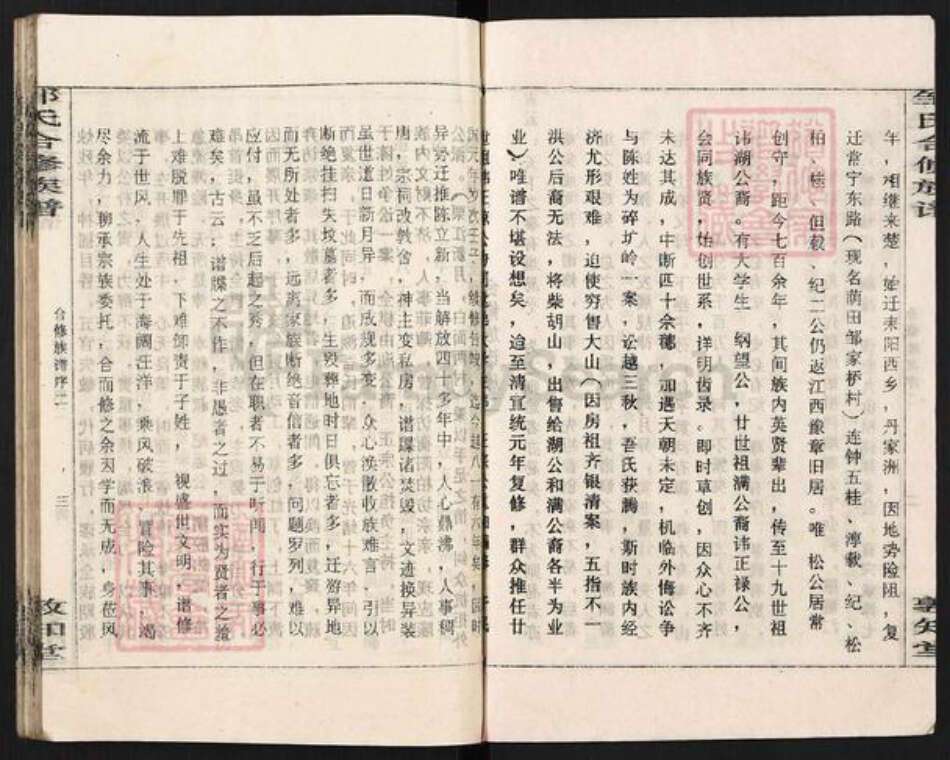 邹氏合修族谱
敦知堂
年，相继来楚，始迁耒阳西乡，丹家洲，因地势险阻，复
迁常宁东路（现名荫田邹家桥村）连钟五桂、淳、纪、松
柏、桂、但毅、纪二公仍返江西豫章旧居。唯 松公居常
创守，距今七百余年，其间族内英贤辈出，传至十九世祖
讳湖公裔。有大学生 纲望公，廿世祖满公裔讳正禄公，
会同族贤，始创世系，详明齿录。即时草创，因众心不齐
未达其成，中断四十余穗，加遇天朝未定，机临外悔讼争
与陈姓为碎圹岭一案，讼越三秋，吾氏获腾，斯时族内经
济尤形艰难，迫使穷售大山（因房祖齐银清案，五指不一
洪公后裔无法，将柴胡山，出售给湖公和满公裔各半为业
业）唯谱不堪设想矣，迨至清宣统元年复修，群众推任廿
异，好迁推陈立新，当解放四十多年中，人心鼎沸，人事稠
唐，宗祠改教舍，神主变私房，谱牒诸焚毁，文迹换异装
虽世道日新月异，而成规多变，众心涣散收族难言，引以
断绝挂扫失坟墓者多，生殁葬地时日俱忘者多，迁游异地
而无所处者多，远离家族断绝音信者多，问题罗列，难以
应付，虽不乏后起之秀，但在职者不易于听闻，行于事必
难矣，古云；谱牒之不作，非愚者之过，而实为贤者之羞
上难脱罪于先祖，下难卸责于子姓， 视盛世文明，谱修
流于世风、人生处于海阔汪洋，乘风破浪、冒险其事，竭
尽余力，聊承宗族委托，合而修之余因学而无成，身莅风
邹氏合修族谱
合修族谱序二
三
敦知堂